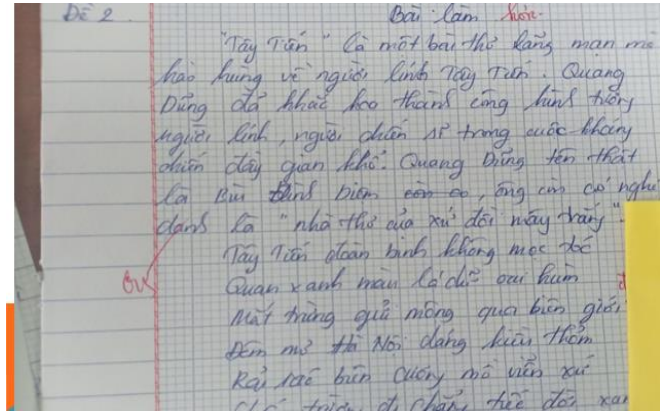 Đề 2. Bài làm hơn.
"Tây Tiến" là một bài thơ lãng mạn mà
hào hùng về người lính Tây Tiến. Quang
Dũng đã khắc hoạ thành công hình tượng
người lính, người chiến sĩ trong cuộc kháng
chiến đầy gian khổ. Quang Dũng tên thật
là Bùi Đình Diệm, ông còn có nghệ
danh là "nhà thơ của xứ đoài mây trắng".
Tây Tiến đoàn binh không mọc tóc
Quân xanh màu lá dữ oai hùm
Mắt trừng gửi mộng qua biên giới
Đêm mơ Hà Nội dáng kiều thơm
Rải rác biên cương mồ viễn xứ
đi chẳng tiếc đời xan